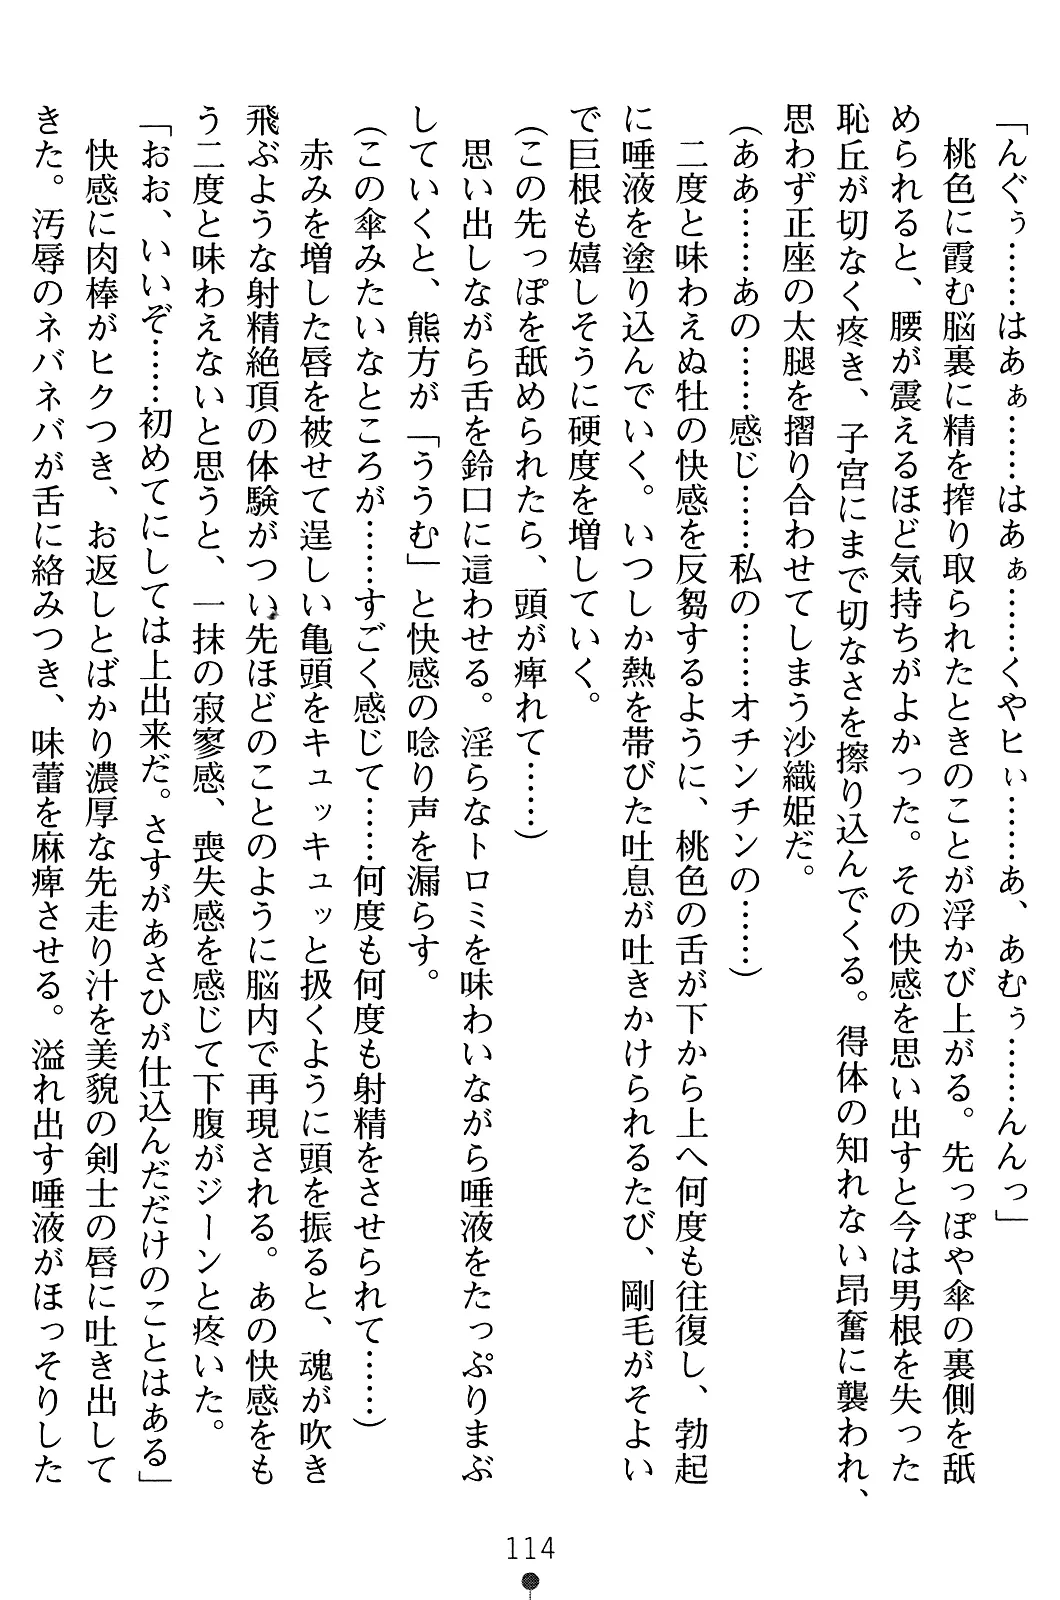 「んぐぅ……はあぁ……はあぁ……くやヒぃ……あ、あむぅ……んんっ」
　桃色に霞む脳裏に精を搾り取られたときのことが浮かび上がる。先っぽや傘の裏側を舐
められると、腰が震えるほど気持ちがよかった。その快感を思い出すと今は男根を失った
恥丘が切なく疼き、子宮にまで切なさを擦り込んでくる。得体の知れない昂奮に襲われ、
思わず正座の太腿を摺り合わせてしまう沙織姫だ。
（ああ……あの……感じ……私の……オチンチンの……）
　二度と味わえぬ牡の快感を反芻するように、桃色の舌が下から上へ何度も往復し、勃起
に唾液を塗り込んでいく。いつしか熱を帯びた吐息が吐きかけられるたび、剛毛がそよい
で巨根も嬉しそうに硬度を増していく。
（この先っぽを舐められたら、頭が痺れて……）
　思い出しながら舌を鈴口に這わせる。淫らなトロミを味わいながら唾液をたっぷりまぶ
していくと、熊方が「ううむ」と快感の唸り声を漏らす。
（この傘みたいなところが……すごく感じて……何度も何度も射精をさせられて……）
　赤みを増した唇を被せて逞しい亀頭をキュッキュッと扱くように頭を振ると、魂が吹き
飛ぶような射精絶頂の体験がつい先ほどのことのように脳内で再現される。あの快感をも
う二度と味わえないと思うと、一抹の寂寥感、喪失感を感じて下腹がジーンと疼いた。
「おお、いいぞ……初めてにしては上出来だ。さすがあさひが仕込んだだけのことはある」
　快感に肉棒がヒクつき、お返しとばかり濃厚な先走り汁を美貌の剣士の唇に吐き出して
きた。汚辱のネバネバが舌に絡みつき、味蕾を麻痺させる。溢れ出す唾液がほっそりした
114